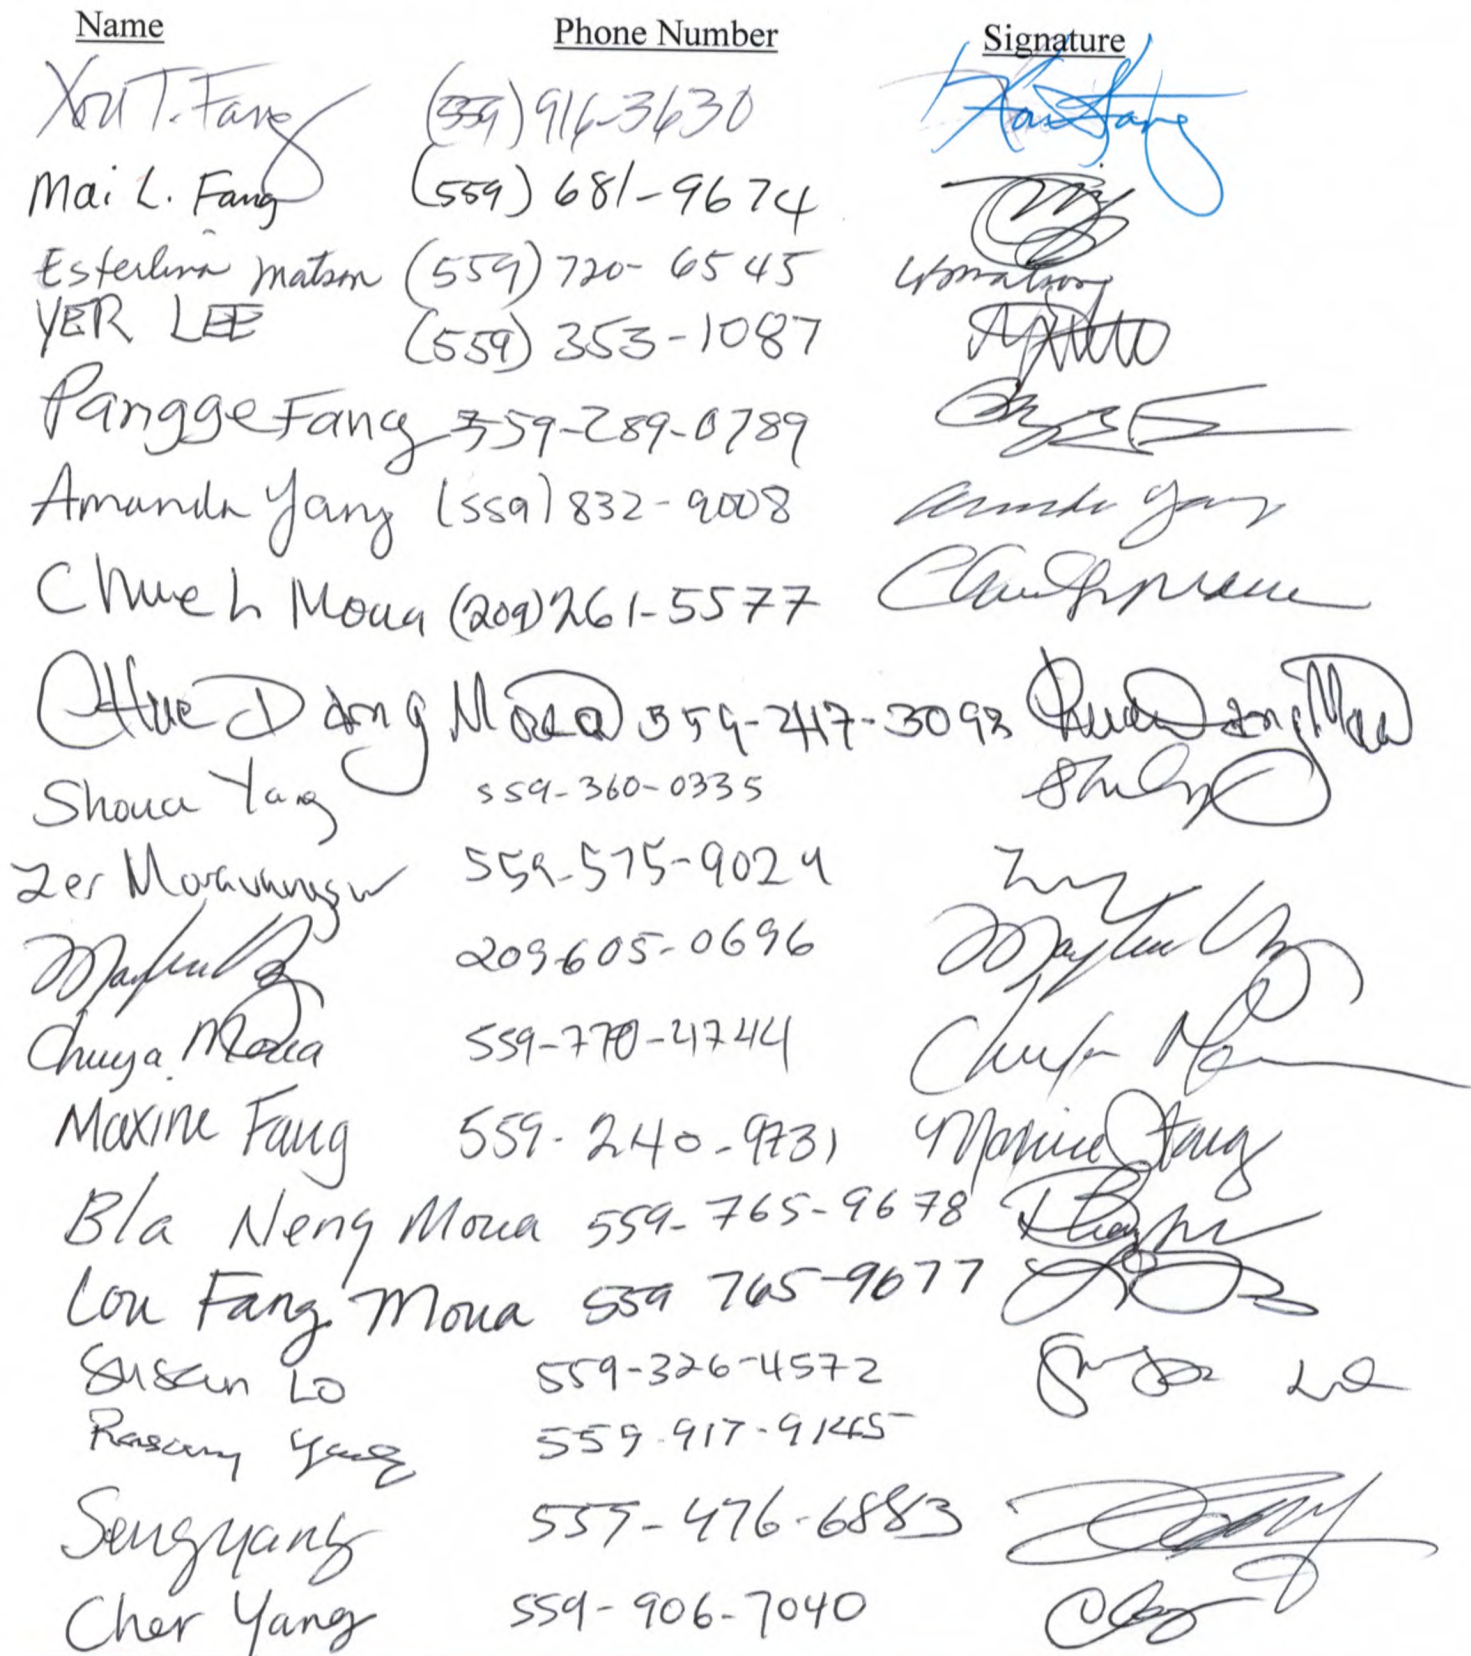 Name Phone Number Signature
Xou T. Fang (559) 916-3630
Mai L. Fang (559) 681-9674
Esterlina Matson (559) 720-6545
YER LEE (559) 353-1087
Pangge Fang 559-289-0789
Amanda Yang (559) 832-9008 Amanda Yang
Chue L Moua (209) 261-5577
Chue Dang Moua 559-247-3093 Chue Dang Moua
Shoua Yang 559-360-0335
Zer 559-575-9024
209-605-0696
Chuya Moua 559-770-4744
Maxine Fang 559-240-9731 Maxine Fang
Bla Neng Moua 559-765-9678
Lou Fang Moua 559 765-9677
Susan Lo 559-326-4572
Yang 559-917-9145
Seng yang 559-476-6883
Cher Yang 559-906-7040